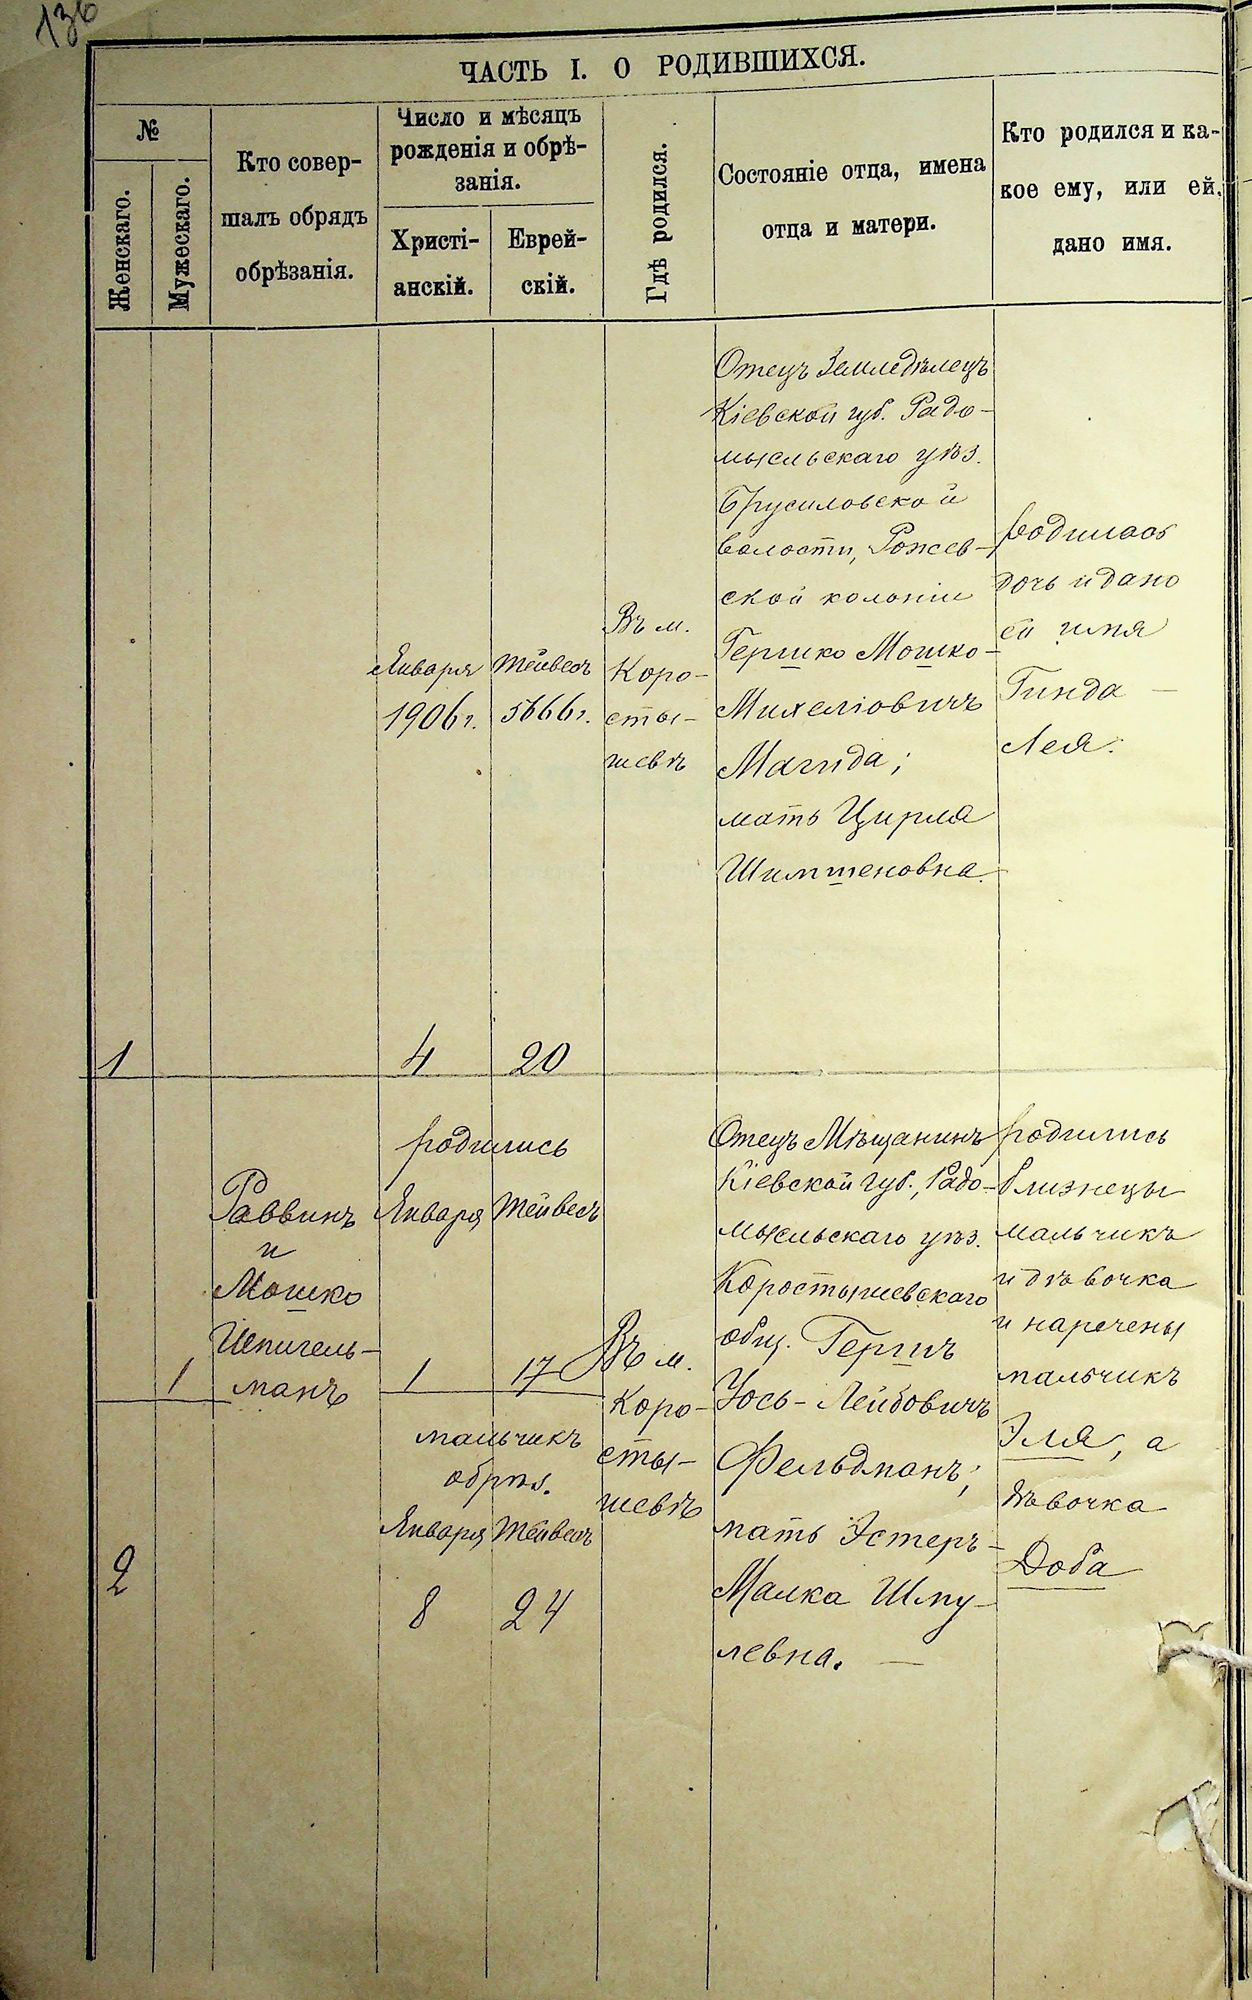 136
ЧАСТЬ I. О РОДИВШИХСЯ.
№
Женскаго.
Мужескаго.
Кто совер-
шалъ обрядъ
обрѣзанія.
Число и мѣсяцъ
рожденія и обрѣ-
занія.
Христі-
анскій.
Еврей-
скій.
Гдѣ родился.
Состояніе отца, имена
отца и матери.
Кто родился и ка-
кое ему, или ей,
дано имя.
1
Января
1906 г.
4
Тейвесъ
5666 г.
20
Въ м.
Коро-
сты-
шевѣ
Отецъ Земледѣлецъ
Кіевской губ. Радо-
мысльскаго уѣз.
Брусиловской
волости, Рожев-
ской колоніи
Гершко Мошко-
Михеліовичъ
Магида;
мать Цирля
Шимшеновна.
родилась
дочь и дано
ей имя
Гинда —
Лея.
1
2
Раввинъ
и
Мошко
Шпигель-
манъ
родились
Января Тейвесъ
1 17
мальчикъ
обрѣз.
Января Тейвесъ
8 24
Въ м.
Коро-
сты-
шевѣ
Отецъ Мѣщанинъ
Кіевской губ., Радо-
мысльскаго уѣз.
Коростышевскаго
общ. Гершъ
Йось-Лейбовичъ
Фельдманъ;
мать Эстеръ-
Малка Шму-
левна. —
родились
близнецы
мальчикъ
и дѣвочка
и наречены
мальчикъ
Эля, а
дѣвочка
Доба